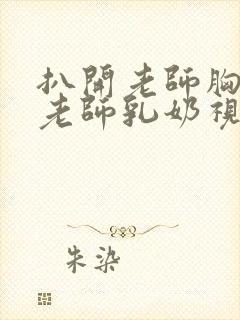 扒開老師胸
老師乳奶視
朱染